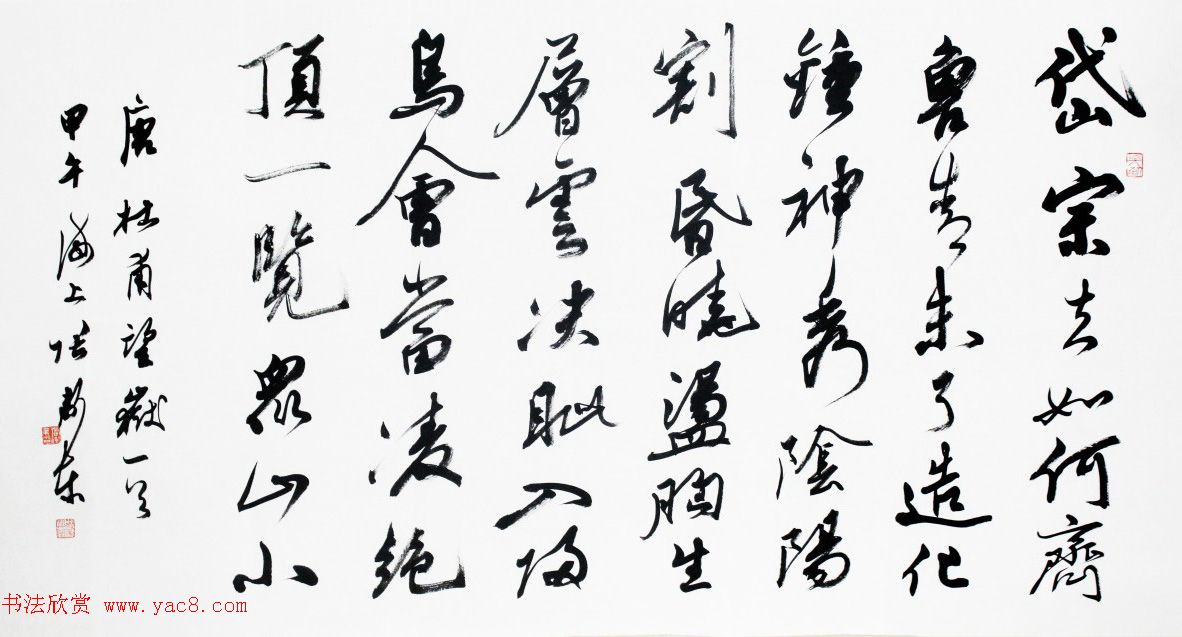 岱宗夫如何齊
魯青未了造化
鍾神秀陰陽
割昏曉盪胸生
層雲决眦入歸
鳥會當凌絕
頂一覽眾山小
唐杜甫望嶽一首
甲午海上張東
书法欣赏 www.yac8.com